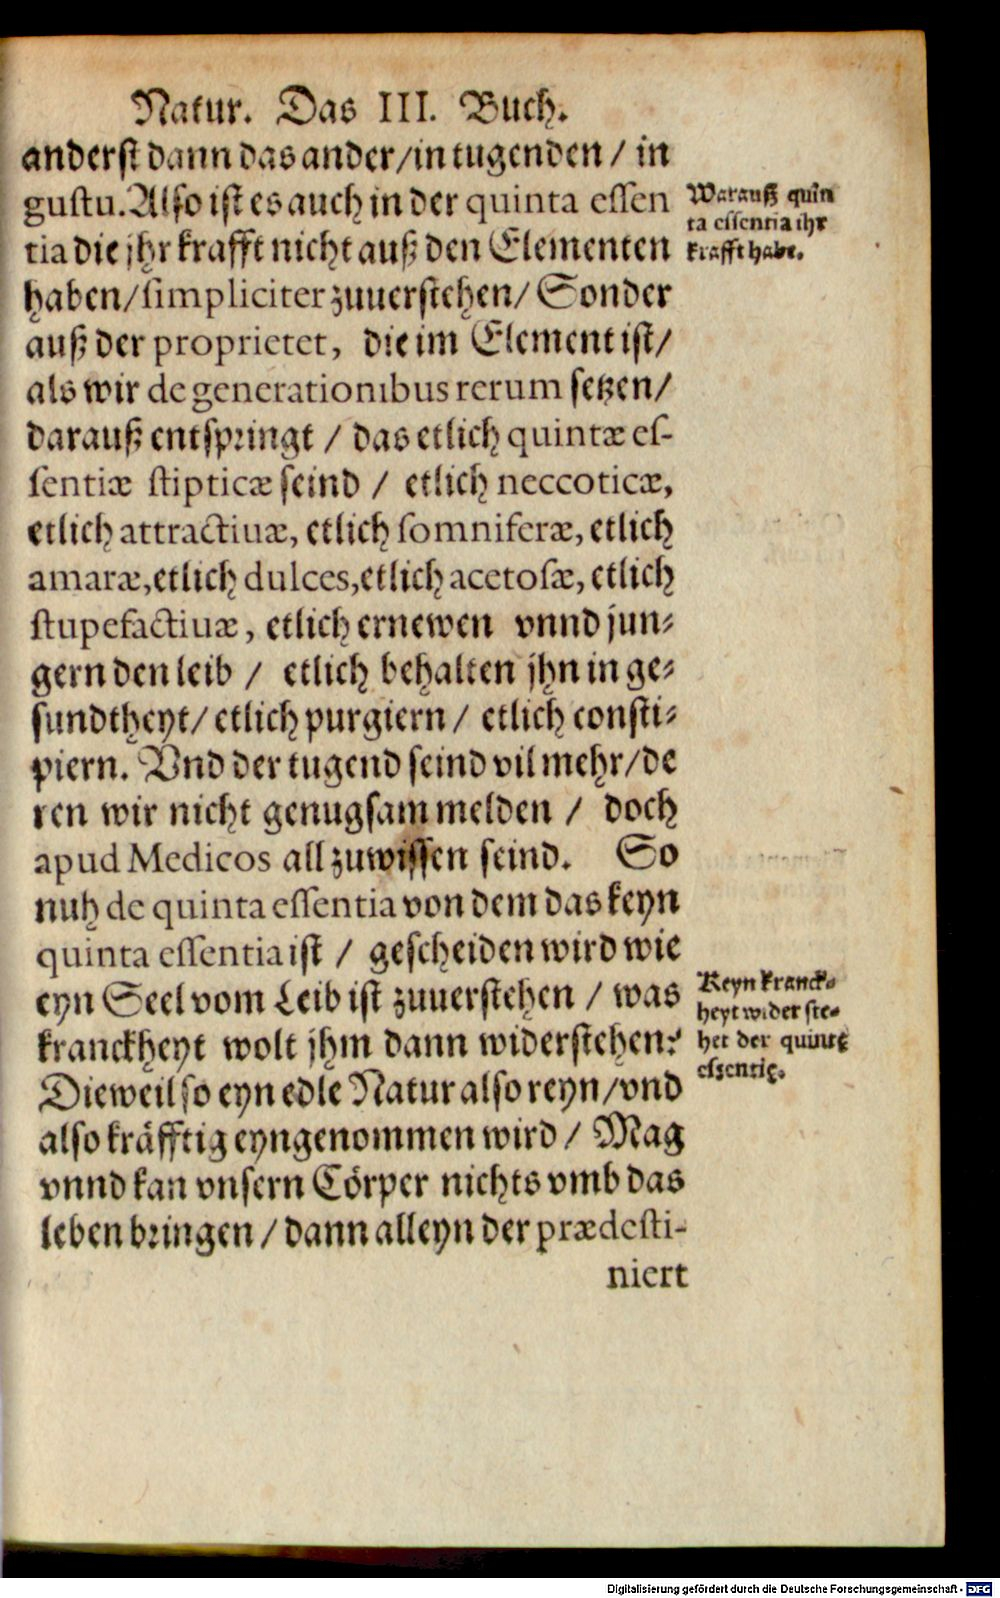 Natur. Das III. Buch.
anderst dann das ander / in tugenden / in
gustu. Also ist es auch in der quinta essen
tia die jhr krafft nicht auß den Elementen
haben / simpliciter zuuerstehen / Sonder
auß der proprietet, die im Element ist /
als wir de generationibus rerum setzen /
darauß entspringt / das etlich quintæ es-
sentiæ stipticæ seind / etlich neccoticæ,
etlich attractiuæ, etlich somniferæ, etlich
amaræ, etlich dulces, etlich acetosæ, etlich
stupefactiuæ, etlich ernewen vnnd jun-
gern den leib / etlich behalten jhn in ge-
sundtheyt / etlich purgiern / etlich consti-
piern. Vnd der tugend seind vil mehr / de
ren wir nicht genugsam melden / doch
apud Medicos all zuwissen seind. So
nuh de quinta essentia von dem das keyn
quinta essentia ist / gescheiden wird wie
eyn Seel vom Leib ist zuuerstehen / was
kranckheyt wolt jhm dann widerstehen?
Dieweil so eyn edle Natur also reyn / vnd
also kräfftig eyngenommen wird / Mag
vnnd kan vnsern Cörper nichts vmb das
leben bringen / dann alleyn der prædesti-
niert
Warauß quin
ta essentia ihr
krafft habe.
Keyn kranck-
heyt wider ste-
het der quintę
essentię.
Digitalisierung gefördert durch die Deutsche Forschungsgemeinschaft - DFG